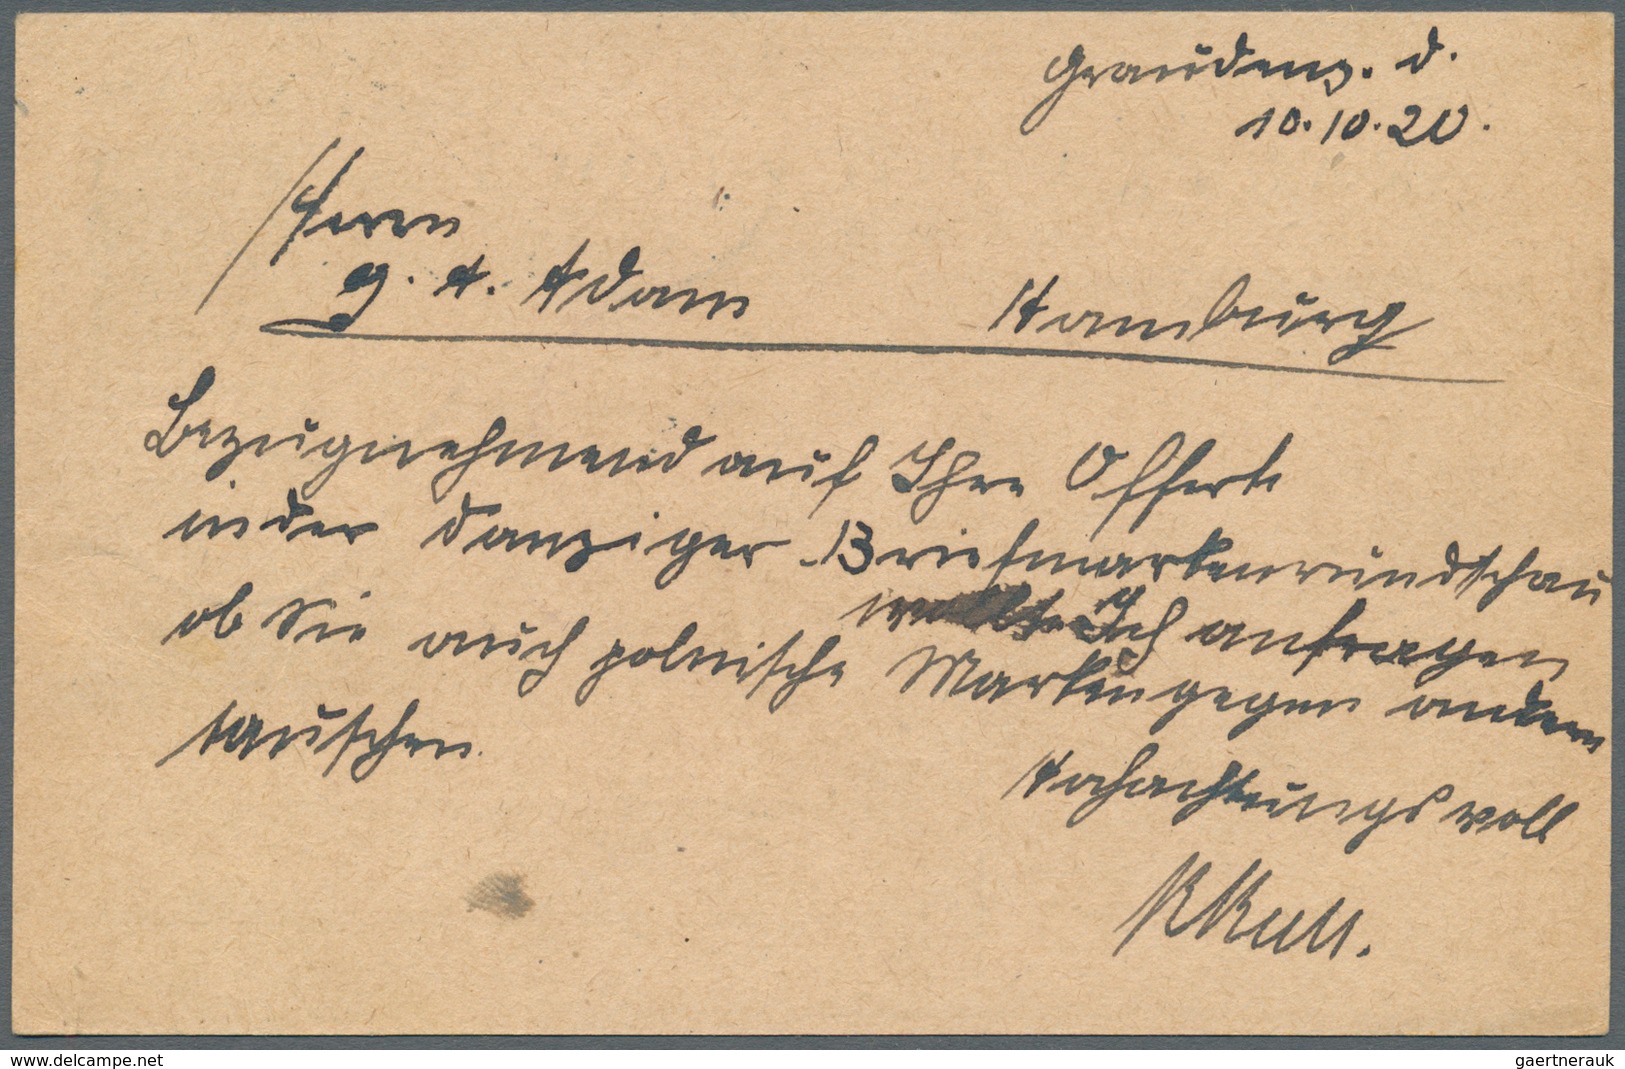 Graudenz. d.
10.10.20.
Herrn
G. A. Adam Hamburg
Bezugnehmend auf Ihre Offerte
in der Danziger Briefmarkenrundschau
wollte Ich anfragen
ob Sie auch polnische Marken gegen andere
tauschen
Hochachtungsvoll
www.delcampe.net
gaertnerauk